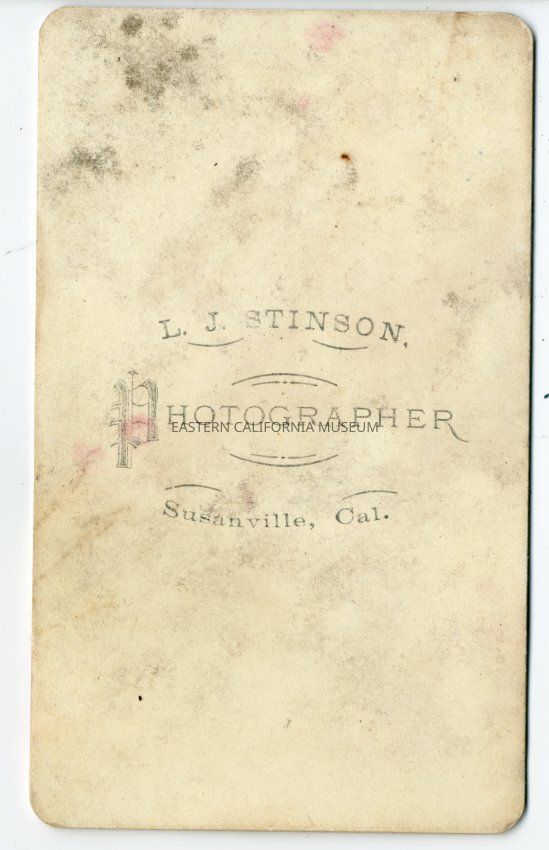 L. J. STINSON,
PHOTOGRAPHER
EASTERN CALIFORNIA MUSEUM
Susanville, Cal.